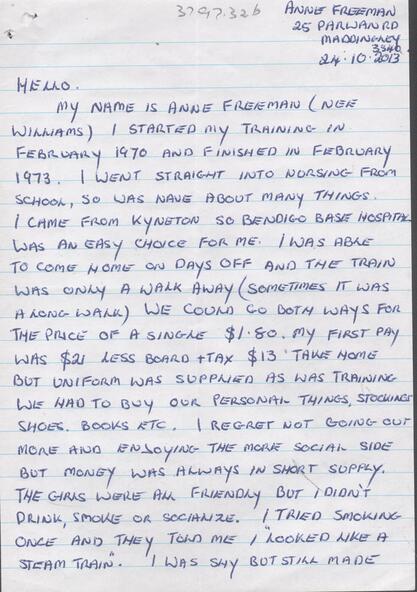 3797.32b
ANNE FREEMAN
25 PARWAN RD
MADDINGLEY
3340
24.10.2013
HELLO.
MY NAME IS ANNE FREEMAN (NEE
WILLIAMS) I STARTED MY TRAINING IN
FEBRUARY 1970 AND FINISHED IN FEBRUARY
1973. I WENT STRAIGHT INTO NURSING FROM
SCHOOL, SO WAS NAVE ABOUT MANY THINGS.
I CAME FROM KYNETON SO BENDIGO BASE HOSPITAL
WAS AN EASY CHOICE FOR ME. I WAS ABLE
TO COME HOME ON DAYS OFF AND THE TRAIN
WAS ONLY A WALK AWAY (SOMETIMES IT WAS
A LONG WALK) WE COULD GO BOTH WAYS FOR
THE PRICE OF A SINGLE $1.80. MY FIRST PAY
WAS $21 LESS BOARD + TAX $13 TAKE HOME
BUT UNIFORM WAS SUPPLIED AS WAS TRAINING
WE HAD TO BUY OUR PERSONAL THINGS, STOCKINGS
SHOES. BOOKS ETC. I REGRET NOT GOING OUT
MORE AND ENJOYING THE MORE SOCIAL SIDE
BUT MONEY WAS ALWAYS IN SHORT SUPPLY.
THE GIRLS WERE ALL FRIENDLY BUT I DIDN'T
DRINK, SMOKE OR SOCIALIZE. I TRIED SMOKING
ONCE AND THEY TOLD ME I "LOOKED LIKE A
STEAM TRAIN". I WAS SHY BUT STILL MADE